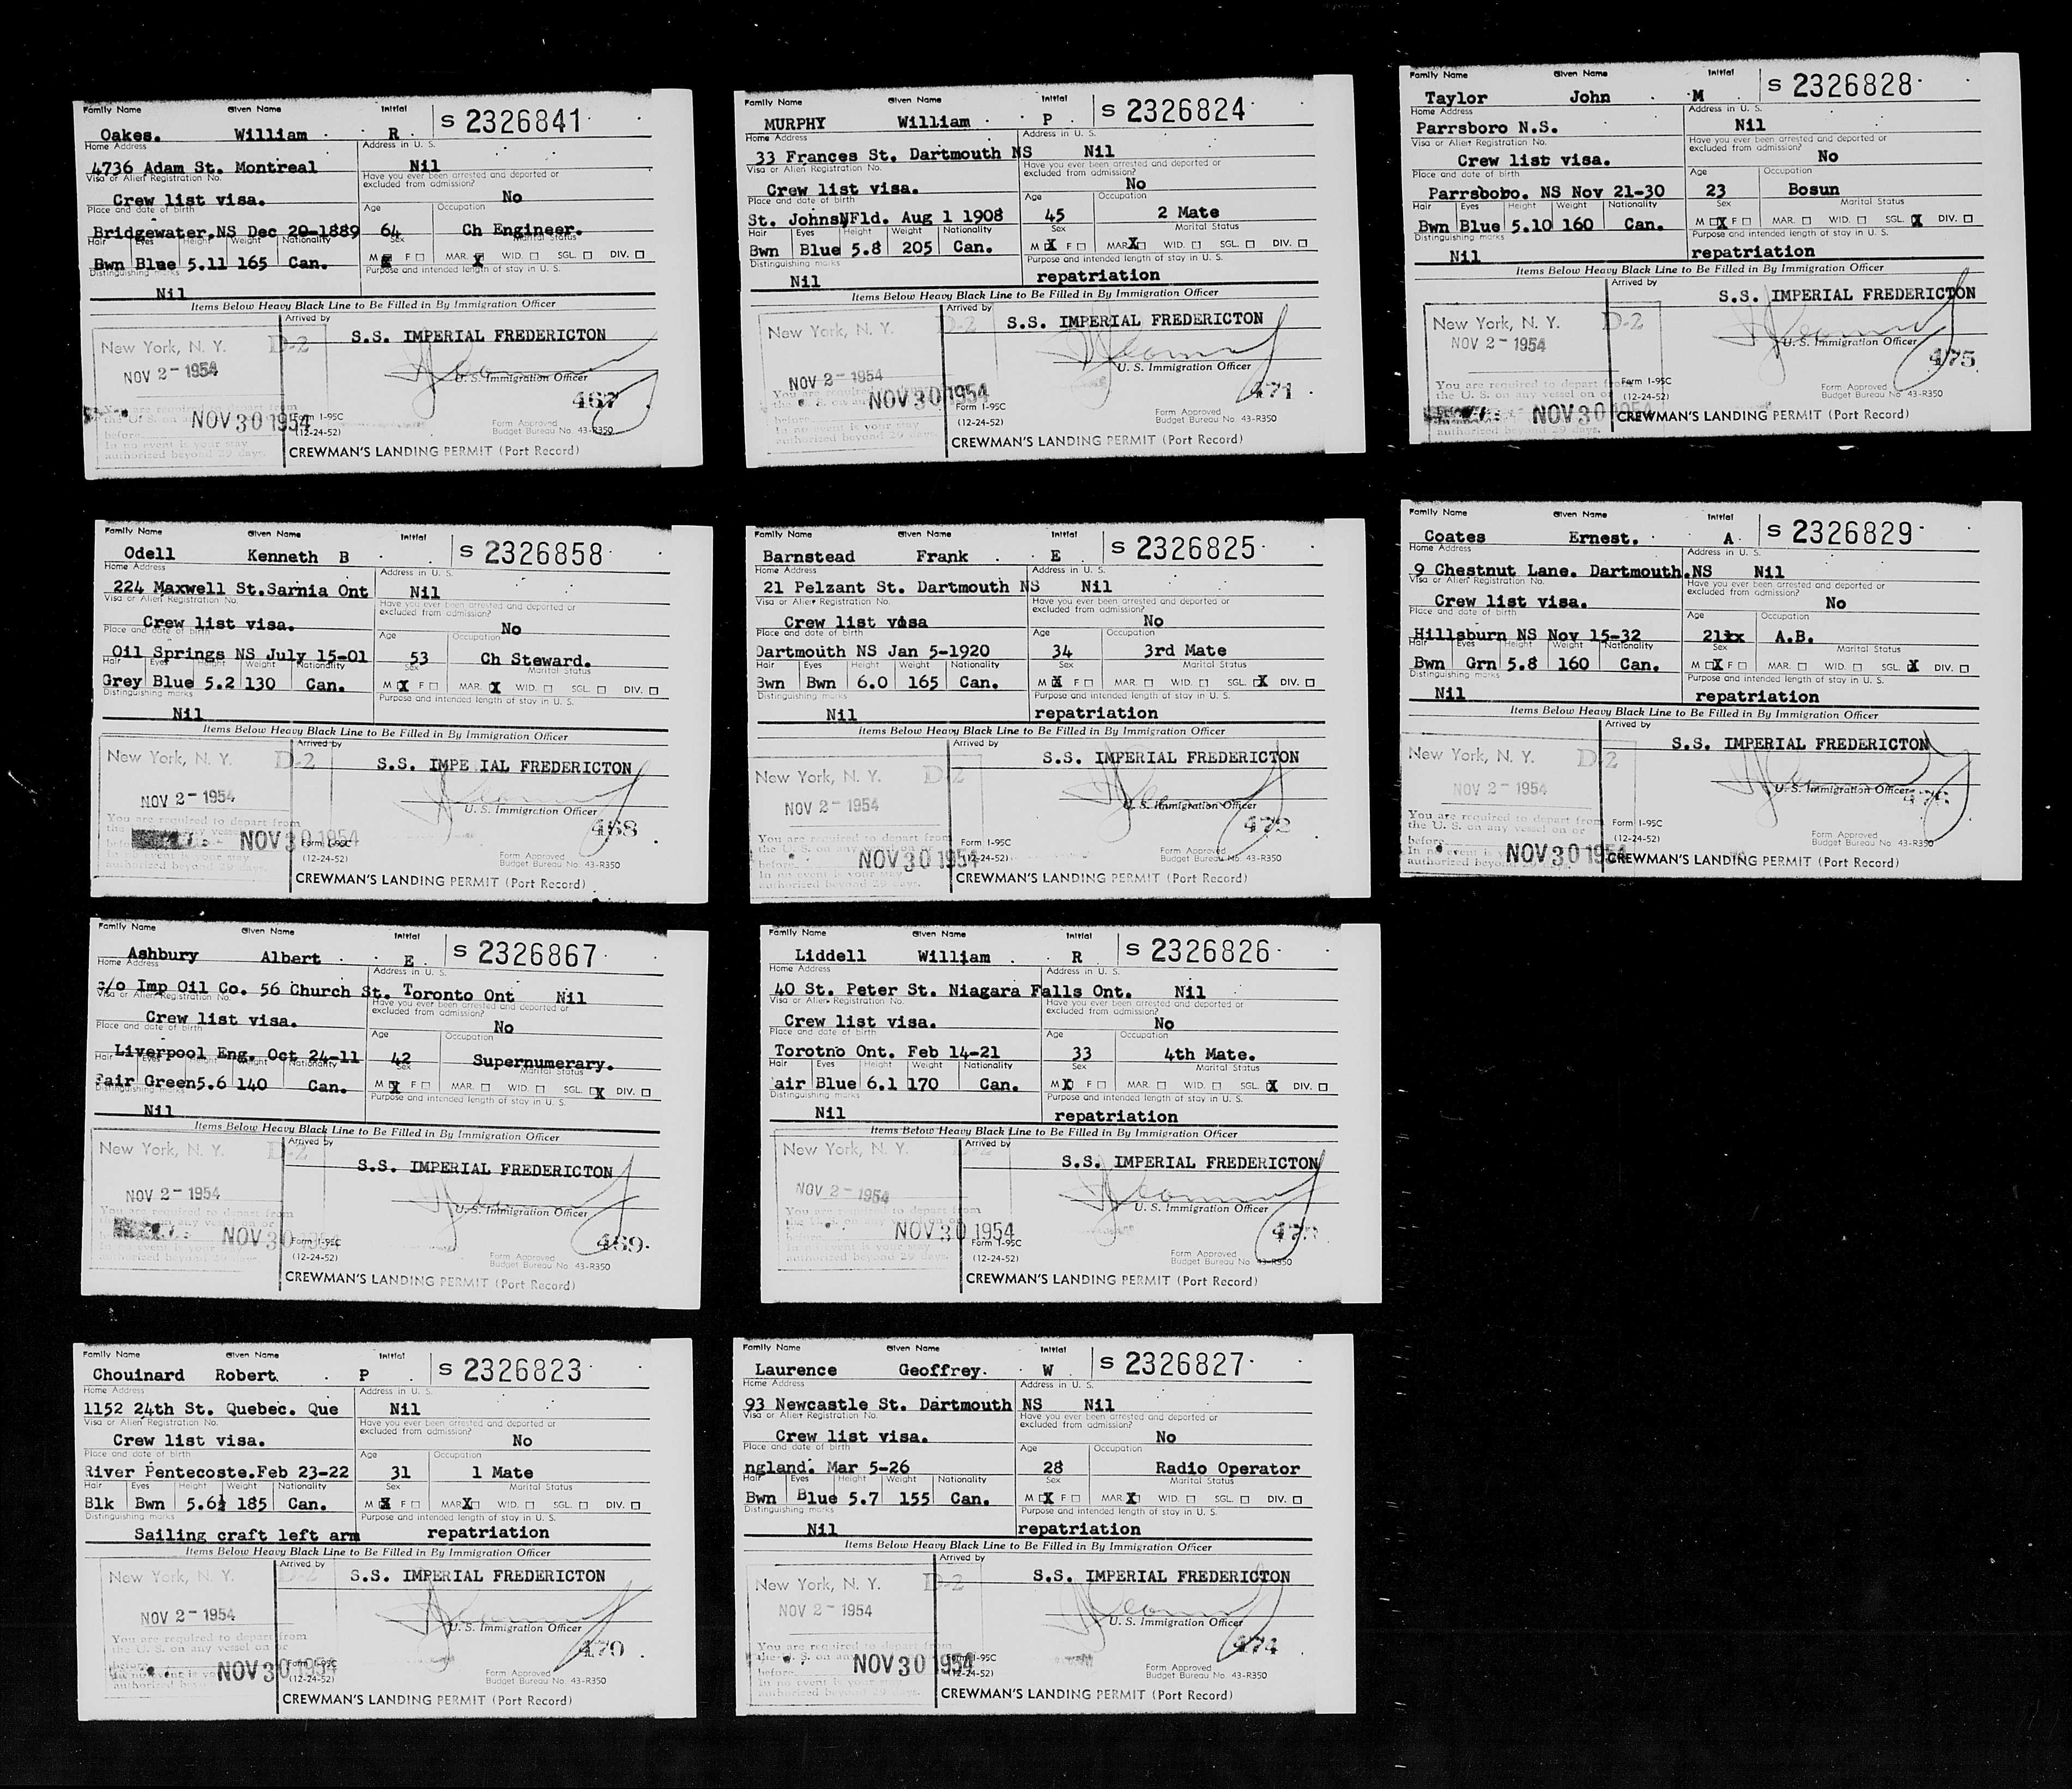 Family Name Given Name Initial
Oakes. William R. S 2326841
Home Address Address in U. S.
4736 Adam St. Montreal Nil
Visa or Alien Registration No. Have you ever been arrested and deported or excluded from admission?
Crew list visa. No
Place and date of birth Age Occupation
Bridgewater,NS Dec 20-1889 64 Ch Engineer.
Hair Eyes Height Weight Nationality Sex Marital Status
Bwn Blue 5.11 165 Can. M X F MAR. X WID. SGL. DIV.
Distinguishing marks Purpose and intended length of stay in U. S.
Nil
Items Below Heavy Black Line to Be Filled in By Immigration Officer
Arrived by
New York, N. Y. D-2 S.S. IMPERIAL FREDERICTON
NOV 2- 1954
U. S. Immigration Officer
467
You are required to depart from
the U. S. on
NOV 30 1954
before
In no event is your stay
authorized beyond 29 days.
Form I-95C
(12-24-52)
Form Approved
Budget Bureau No. 43-R350
CREWMAN'S LANDING PERMIT (Port Record)
Family Name Given Name Initial
Odell Kenneth B S 2326858
Home Address Address in U. S.
224 Maxwell St.Sarnia Ont Nil
Visa or Alien Registration No. Have you ever been arrested and deported or excluded from admission?
Crew list visa. No
Place and date of birth Age Occupation
Oil Springs NS July 15-01 53 Ch Steward.
Hair Eyes Height Weight Nationality Sex Marital Status
Grey Blue 5.2 130 Can. M X F MAR. X WID. SGL. DIV.
Distinguishing marks Purpose and intended length of stay in U. S.
Nil
Items Below Heavy Black Line to Be Filled in By Immigration Officer
Arrived by
New York, N. Y. D-2 S.S. IMPE IAL FREDERICTON
NOV 2- 1954
U. S. Immigration Officer
468
You are required to depart from
the any vessel
NOV 30 1954
In no event is your stay
authorized beyond 29 days.
Form I-95C
(12-24-52)
Form Approved
Budget Bureau No. 43-R350
CREWMAN'S LANDING PERMIT (Port Record)
Family Name Given Name Initial
Ashbury Albert E. S 2326867
Home Address Address in U. S.
c/o Imp Oil Co. 56 Church St. Toronto Ont Nil
Visa or Alien Registration No. Have you ever been arrested and deported or excluded from admission?
Crew list visa. No
Place and date of birth Age Occupation
Liverpool Eng. Oct 24-11 42 Supernumerary.
Hair Eyes Height Weight Nationality Sex Marital Status
Fair Green5.6 140 Can. M X F MAR. WID. SGL. X DIV.
Distinguishing marks Purpose and intended length of stay in U. S.
Nil
Items Below Heavy Black Line to Be Filled in By Immigration Officer
Arrived by
New York, N. Y. D-2 S.S. IMPERIAL FREDERICTON
NOV 2- 1954
U. S. Immigration Officer
469.
You are required to depart from
any vessel on or
NOV 30 1954
In no event is your
authorized beyond 29 days.
Form I-95C
(12-24-52)
Form Approved
Budget Bureau No. 43-R350
CREWMAN'S LANDING PERMIT (Port Record)
Family Name Given Name Initial
Chouinard Robert. P S 2326823
Home Address Address in U. S.
1152 24th St. Quebec. Que Nil
Visa or Alien Registration No. Have you ever been arrested and deported or excluded from admission?
Crew list visa. No
Place and date of birth Age Occupation
River Pentecoste.Feb 23-22 31 1 Mate
Hair Eyes Height Weight Nationality Sex Marital Status
Blk Bwn 5.6½ 185 Can. M X F MAR. X WID. SGL. DIV.
Distinguishing marks Purpose and intended length of stay in U. S.
Sailing craft left arm repatriation
Items Below Heavy Black Line to Be Filled in By Immigration Officer
Arrived by
New York, N. Y. D-2 S.S. IMPERIAL FREDERICTON
NOV 2- 1954
U. S. Immigration Officer
470
You are required to depart from
the U. S. on any vessel on or
before
NOV 30 1954
authorized
Form I-95C
(12-24-52)
Form Approved
Budget Bureau No. 43-R350
CREWMAN'S LANDING PERMIT (Port Record)
Family Name Given Name Initial
MURPHY William P. S 2326824
Home Address Address in U. S.
33 Frances St. Dartmouth NS Nil
Visa or Alien Registration No. Have you ever been arrested and deported or excluded from admission?
Crew list visa. No
Place and date of birth Age Occupation
St. JohnsNFld. Aug 1 1908 45 2 Mate
Hair Eyes Height Weight Nationality Sex Marital Status
Bwn Blue 5.8 205 Can. M X F MAR. X WID. SGL. DIV.
Distinguishing marks Purpose and intended length of stay in U. S.
Nil repatriation
Items Below Heavy Black Line to Be Filled in By Immigration Officer
Arrived by
New York, N. Y. D-2 S.S. IMPERIAL FREDERICTON
NOV 2- 1954
U. S. Immigration Officer
471
You are required
the U. S. on any
NOV 30 1954
before
In no event is your stay
authorized beyond 29 days.
Form I-95C
(12-24-52)
Form Approved
Budget Bureau No. 43-R350
CREWMAN'S LANDING PERMIT (Port Record)
Family Name Given Name Initial
Barnstead Frank E S 2326825
Home Address Address in U. S.
21 Pelzant St. Dartmouth NS Nil
Visa or Alien Registration No. Have you ever been arrested and deported or excluded from admission?
Crew list visa No
Place and date of birth Age Occupation
Dartmouth NS Jan 5-1920 34 3rd Mate
Hair Eyes Height Weight Nationality Sex Marital Status
Bwn Bwn 6.0 165 Can. M X F MAR. WID. SGL. X DIV.
Distinguishing marks Purpose and intended length of stay in U. S.
Nil repatriation
Items Below Heavy Black Line to Be Filled in By Immigration Officer
Arrived by
New York, N. Y. D-2 S.S. IMPERIAL FREDERICTON
NOV 2- 1954
U. S. Immigration Officer
472
You are required to depart from
the U. S. on any vessel on or
before
NOV 30 1954
In no event is your stay
authorized beyond 29 days.
Form I-95C
(12-24-52)
Form Approved
Budget Bureau No. 43-R350
CREWMAN'S LANDING PERMIT (Port Record)
Family Name Given Name Initial
Liddell William R S 2326826
Home Address Address in U. S.
40 St. Peter St. Niagara Falls Ont. Nil
Visa or Alien Registration No. Have you ever been arrested and deported or excluded from admission?
Crew list visa. No
Place and date of birth Age Occupation
Torotno Ont. Feb 14-21 33 4th Mate.
Hair Eyes Height Weight Nationality Sex Marital Status
air Blue 6.1 170 Can. M X F MAR. WID. SGL. X DIV.
Distinguishing marks Purpose and intended length of stay in U. S.
Nil repatriation
Items Below Heavy Black Line to Be Filled in By Immigration Officer
Arrived by
New York, N. Y. D-2 S.S. IMPERIAL FREDERICTON
NOV 2- 1954
U. S. Immigration Officer
You are required to depart from
the U. S. on any vessel on or
NOV 30 1954
before
In no event is your stay
authorized beyond 29 days.
Form I-95C
(12-24-52)
Form Approved
Budget Bureau No. 43-R350
CREWMAN'S LANDING PERMIT (Port Record)
Family Name Given Name Initial
Laurence Geoffrey. W S 2326827
Home Address Address in U. S.
93 Newcastle St. Dartmouth NS Nil
Visa or Alien Registration No. Have you ever been arrested and deported or excluded from admission?
Crew list visa. No
Place and date of birth Age Occupation
ngland. Mar 5-26 28 Radio Operator
Hair Eyes Height Weight Nationality Sex Marital Status
Bwn Blue 5.7 155 Can. M X F MAR. X WID. SGL. DIV.
Distinguishing marks Purpose and intended length of stay in U. S.
Nil repatriation
Items Below Heavy Black Line to Be Filled in By Immigration Officer
Arrived by
New York, N. Y. D-2 S.S. IMPERIAL FREDERICTON
NOV 2- 1954
U. S. Immigration Officer
474
You are required to depart from
the U. S. on any
before
NOV 30 1954
In no event is your stay
authorized beyond 29 days.
Form I-95C
(12-24-52)
Form Approved
Budget Bureau No. 43-R350
CREWMAN'S LANDING PERMIT (Port Record)
Family Name Given Name Initial
Taylor John M S 2326828
Home Address Address in U. S.
Parrsboro N.S. Nil
Visa or Alien Registration No. Have you ever been arrested and deported or excluded from admission?
Crew list visa. No
Place and date of birth Age Occupation
Parrsbobo. NS Nov 21-30 23 Bosun
Hair Eyes Height Weight Nationality Sex Marital Status
Bwn Blue 5.10 160 Can. M X F MAR. WID. SGL. X DIV.
Distinguishing marks Purpose and intended length of stay in U. S.
Nil repatriation
Items Below Heavy Black Line to Be Filled in By Immigration Officer
Arrived by
New York, N. Y. D-2 S.S. IMPERIAL FREDERICTON
NOV 2- 1954
U. S. Immigration Officer
475
You are required to depart from
the U. S. on any vessel on or
NOV 30 1954
authorized beyond 29 days.
Form I-95C
(12-24-52)
Form Approved
Budget Bureau No. 43-R350
CREWMAN'S LANDING PERMIT (Port Record)
Family Name Given Name Initial
Coates Ernest. A. S 2326829
Home Address Address in U. S.
9 Chestnut Lane. Dartmouth.NS Nil
Visa or Alien Registration No. Have you ever been arrested and deported or excluded from admission?
Crew list visa. No
Place and date of birth Age Occupation
Hillsburn NS Nov 15-32 21xx A.B.
Hair Eyes Height Weight Nationality Sex Marital Status
Bwn Grn 5.8 160 Can. M X F MAR. WID. SGL. X DIV.
Distinguishing marks Purpose and intended length of stay in U. S.
Nil repatriation
Items Below Heavy Black Line to Be Filled in By Immigration Officer
Arrived by
New York, N. Y. D-2 S.S. IMPERIAL FREDERICTON
NOV 2- 1954
U. S. Immigration Officer
476
You are required to depart from
the U. S. on any vessel on or
before
NOV 30 1954
In no event is your stay
authorized beyond 29 days.
Form I-95C
(12-24-52)
Form Approved
Budget Bureau No. 43-R350
CREWMAN'S LANDING PERMIT (Port Record)